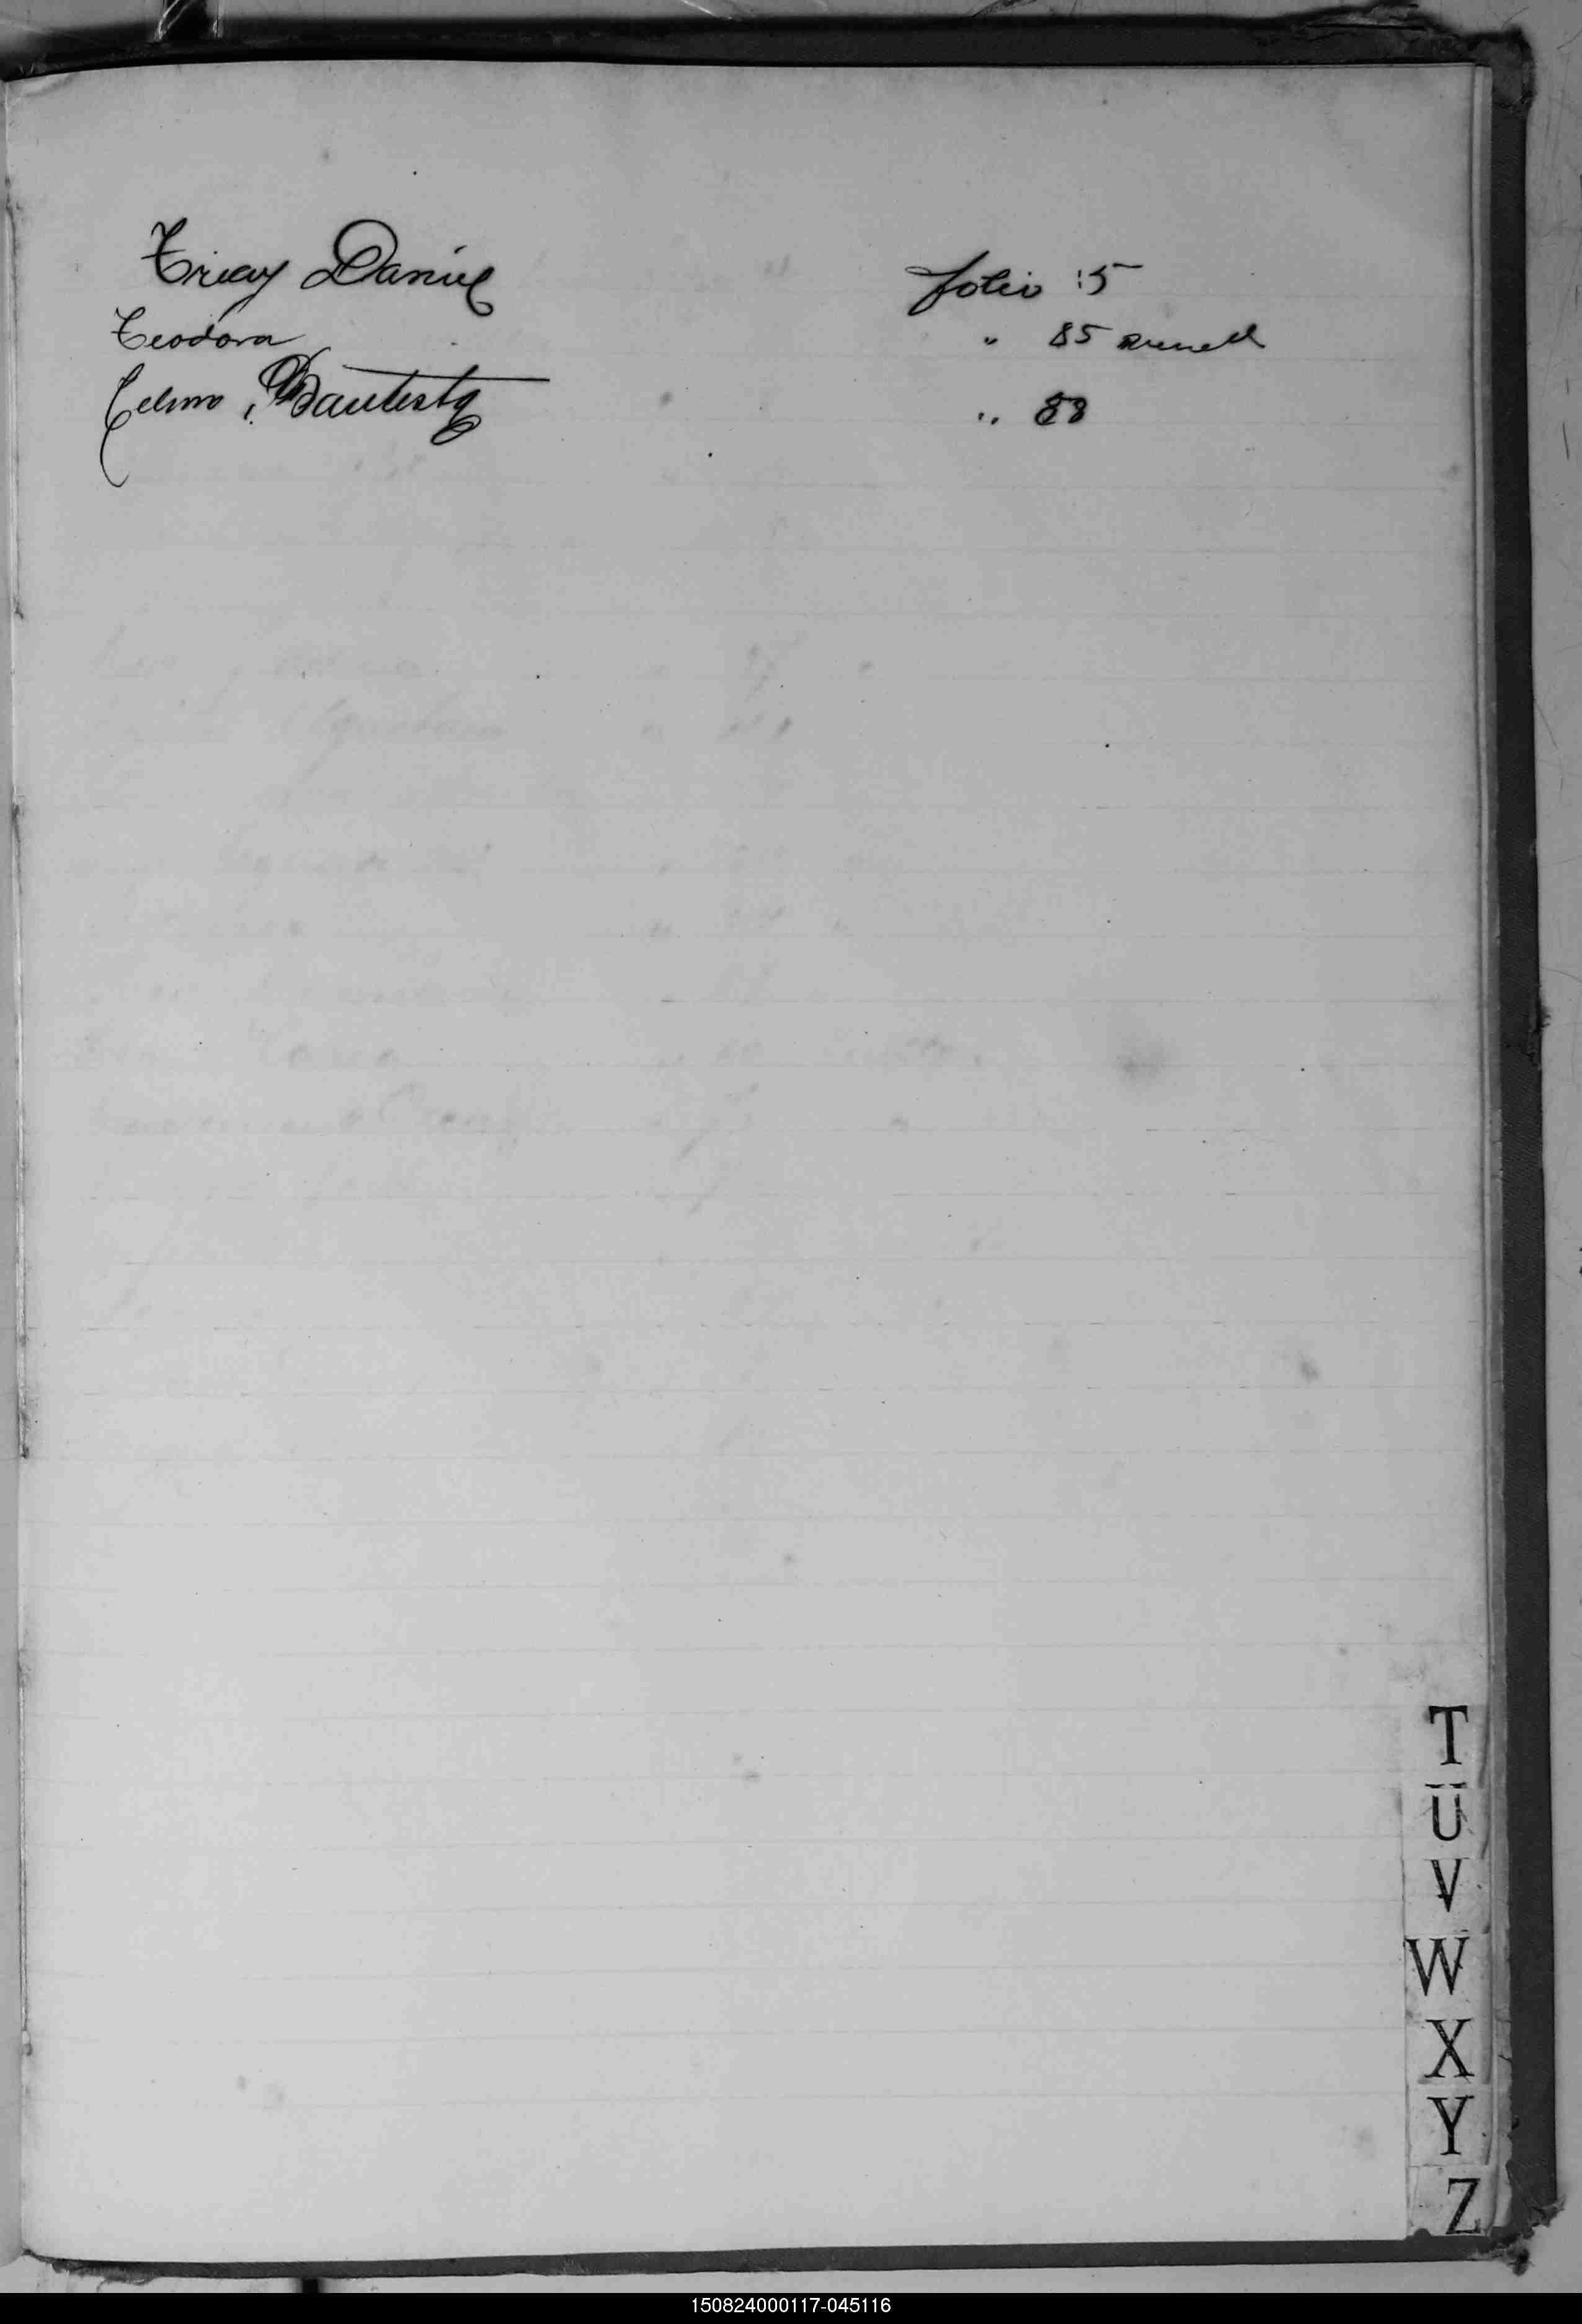 Triay Daniel folio 15
Teodora " 85
Telmo, Bautista " 88
T
U
V
W
X
Y
Z
150824000117-045116